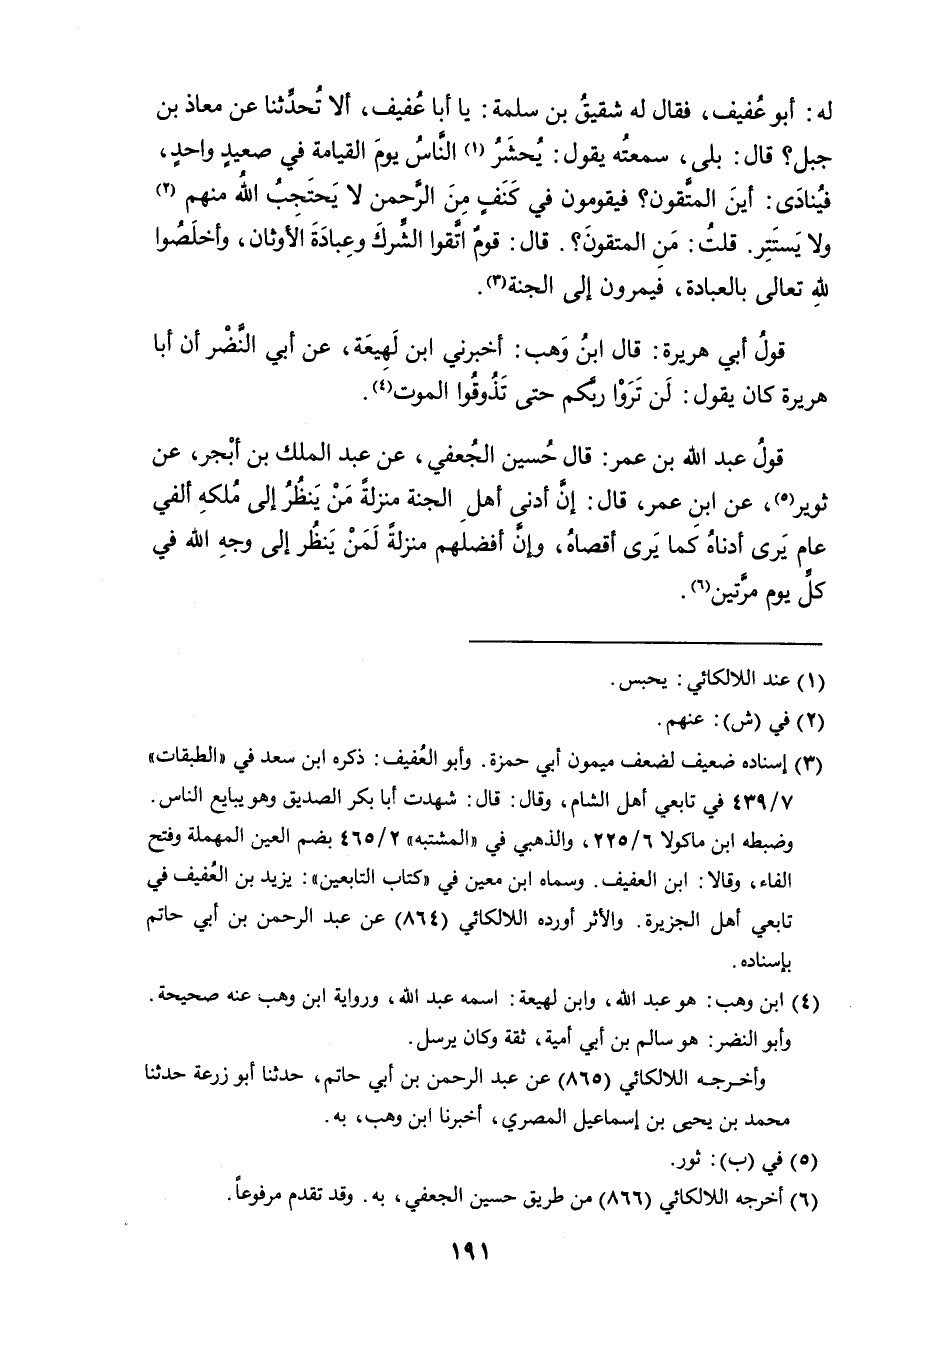 له: أبو عُفيف، فقال له شقيقُ بن سلمة: يا أبا عُفيف، ألا تُحدِّثنا عن معاذ بن
جبل؟ قال: بلى، سمعتُه يقول: يُحشَرُ (١) النَّاسُ يومَ القيامة في صعيدٍ واحدٍ،
فيُنادَى: أينَ المتَّقون؟ فيقومون في كَنَفٍ مِنَ الرَّحمن لا يَحتَجِبُ اللهُ منهم (٢)
ولا يَستَتِر. قلتُ: مَن المتقونَ؟. قال: قومٌ اتَّقوا الشِّركَ وعِبادَةَ الأوثان، وأخلَصُوا
للهِ تعالى بالعبادة، فيمرون إلى الجنة(٣).
قولُ أبي هريرة: قال ابنُ وَهب: أخبرني ابن لَهِيعَة، عن أبي النَّضْر أن أبا
هريرة كان يقول: لَن تَرَوْا ربَّكم حتى تَذُوقُوا الموت(٤).
قولُ عبد الله بن عمر: قال حُسين الجُعفي، عن عبد الملك بن أبْجر، عن
ثوير(٥)، عن ابنِ عمر، قال: إنَّ أدنى أهلِ الجنة منزلةً مَنْ يَنظُرُ إلى مُلكهِ ألفي
عام يَرى أدناهُ كما يَرى أقصاهُ، وإنَّ أفضلهم منزلةً لَمَنْ يَنظُر إلى وجهِ الله في
كلِّ يوم مرَّتين(٦).
(١) عند اللالكائي: يحبس.
(٢) في (ش): عنهم.
(٣) إسناده ضعيف لضعف ميمون أبي حمزة. وأبو العُفيف: ذكره ابن سعد في «الطبقات»
٤٣٩/٧ في تابعي أهل الشام، وقال: قال: شهدت أبا بكر الصديق وهو يبايع الناس.
وضبطه ابن ماكولا ٢٢٥/٦، والذهبي في «المشتبه» ٤٦٥/٢ بضم العين المهملة وفتح
الفاء، وقالا: ابن العفيف. وسماه ابن معين في «كتاب التابعين»: يزيد بن العُفيف في
تابعي أهل الجزيرة. والأثر أورده اللالكائي (٨٦٤) عن عبد الرحمن بن أبي حاتم
بإسناده.
(٤) ابن وهب: هو عبد الله، وابن لهيعة: اسمه عبد الله، ورواية ابن وهب عنه صحيحة.
وأبو النضر: هو سالم بن أبي أمية، ثقة وكان يرسل.
وأخرجه اللالكائي (٨٦٥) عن عبد الرحمن بن أبي حاتم، حدثنا أبو زرعة حدثنا
محمد بن يحيى بن إسماعيل المصري، أخبرنا ابن وهب، به.
(٥) في (ب): ثور.
(٦) أخرجه اللالكائي (٨٦٦) من طريق حسين الجعفي، به. وقد تقدم مرفوعاً.
١٩١